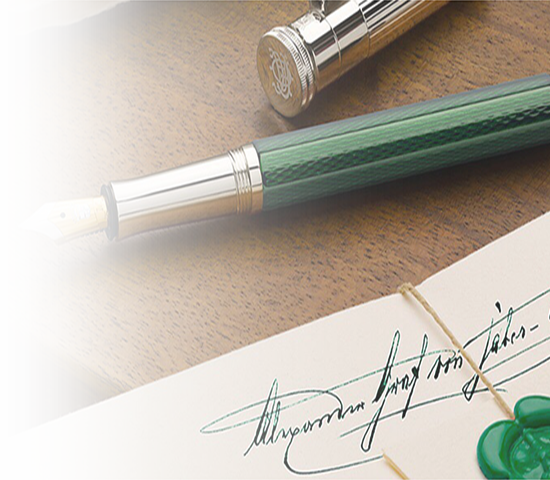 Alexander Graf von Faber-